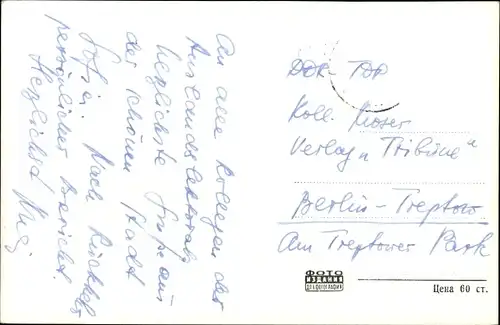 An alle Kollegen des
Auslandslektorats
herzlichste Grüße aus
der schönen Stadt
Sofia. Nach Rückkehr
persönlicher Bericht.
Herzlichst
DDR-
Koll. Moser
Verlag "Tribüne"
Berlin-Treptow
Am Treptower Park
ФОТО
ИЗДАНИЕ
ДПК ФОТОГРАФИЯ
Цена 60 ст.